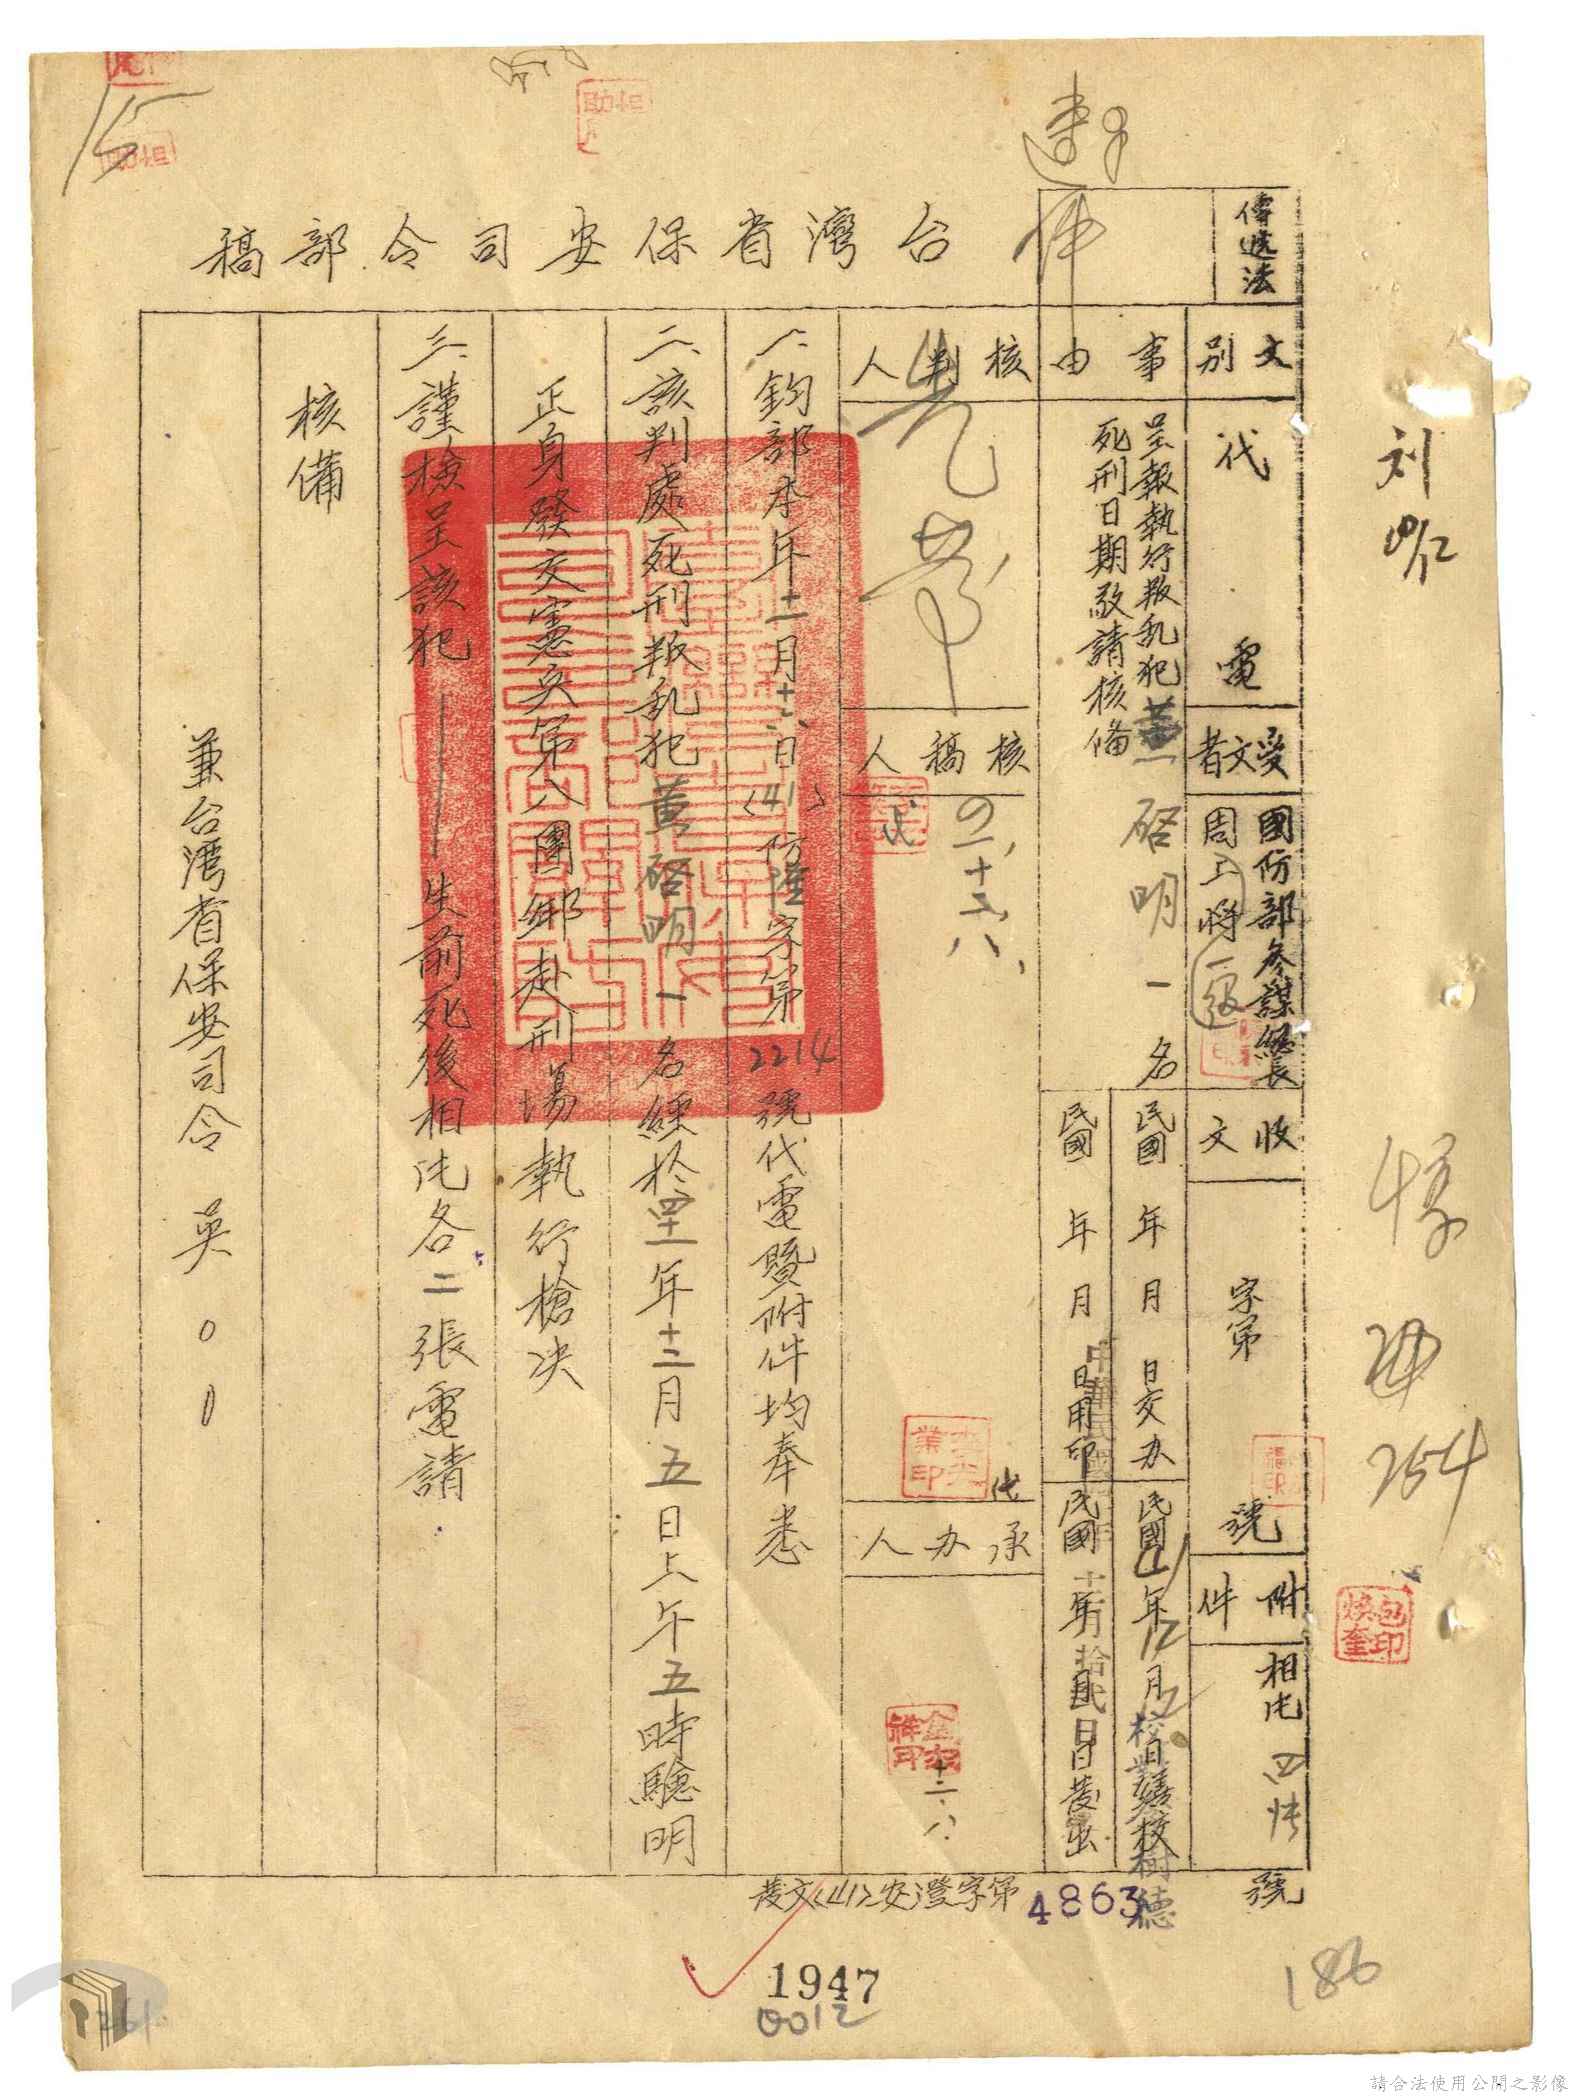 台灣省保安司令部稿
傳遞法
文別
代電
受文者
國防部參謀總長
周上將
一級
收文
字第
號
附件
相片四張
事由
呈報執行叛乱犯黃啓明一名
死刑日期敬請核备
民國 年 月 日交办
民國41年12月12日繕校
民國 年 月 日用印
民國 年 月 日發出
中華民國
校對
樹德
核判人
核稿人
四一、十二、八、
代
承办人
十二、八、
一、鈞部本年十一月十六日(41)防隆字第2214號代電暨附件均奉悉
二、該判處死刑叛乱犯黃啓明一名經於四十一年十二月五日上午五時驗明
正身發交憲兵第八團綁赴刑場執行槍决
三、謹檢呈該犯生前死後相片各二張電請
核備
兼台灣省保安司令 吳○○
發文(41)安澄字第4863號
1947
0012
186
254
包煥奎印
請合法使用公開之影像